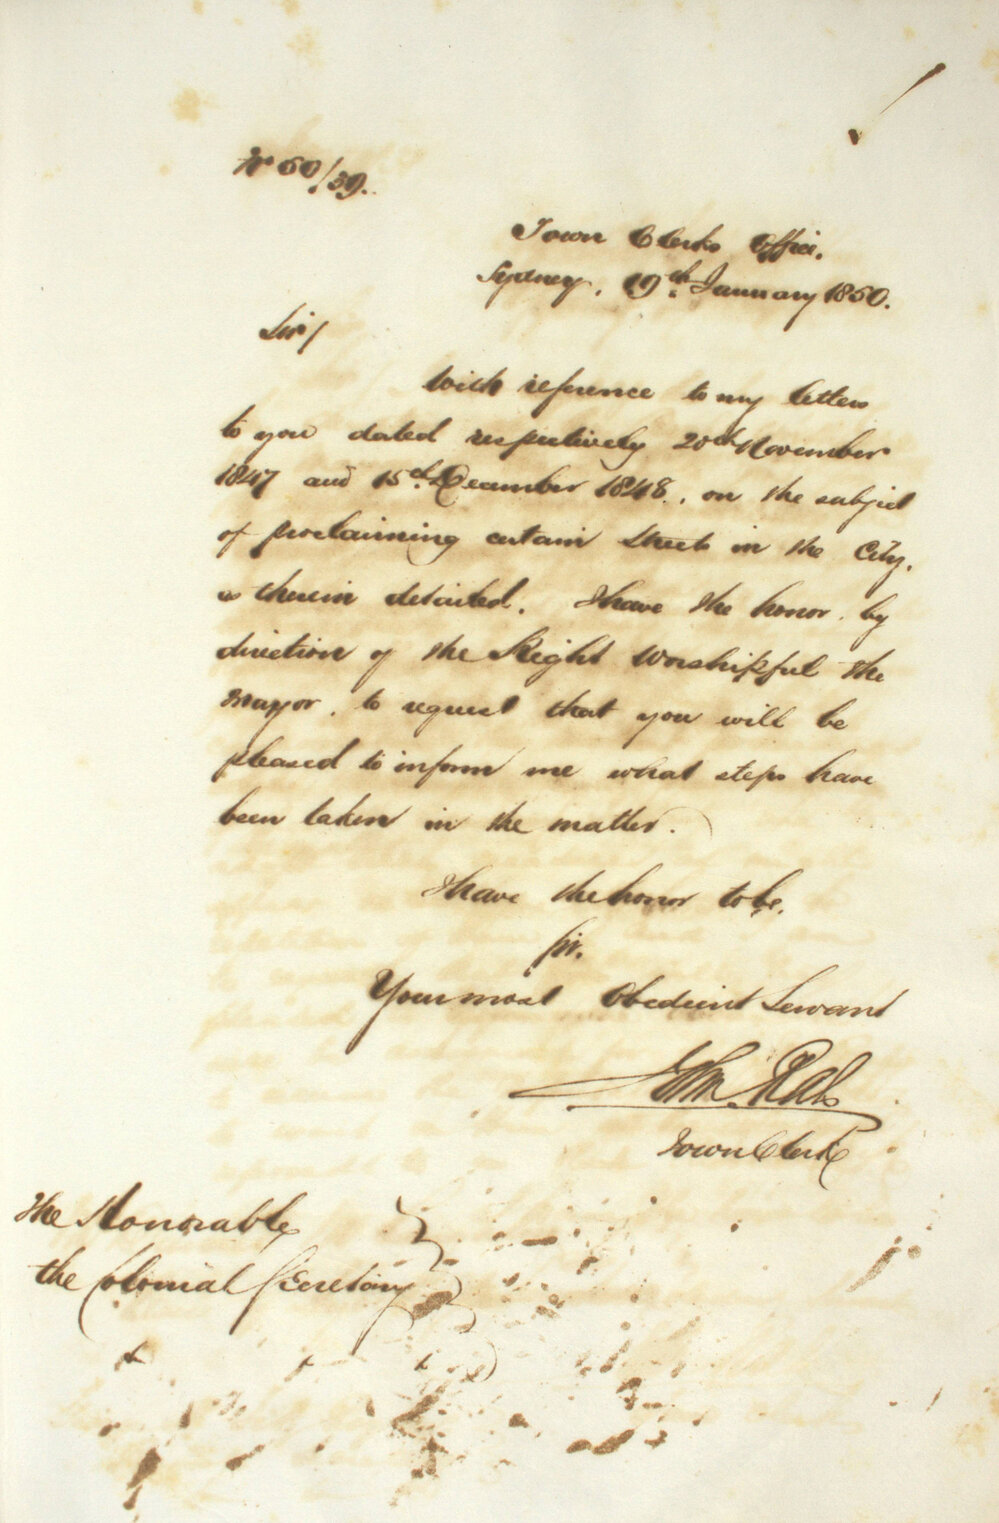 No 50/39.
Town Clerks Office.
Sydney, 19th January 1850.
Sir/
With reference to my letters
to you dated respectively 20th November
1847 and 15th December 1848, on the subject
of proclaiming certain Streets in the City,
as therein detailed. I have the honor, by
direction of the Right Worshipful the
Mayor, to request that you will be
pleased to inform me what steps have
been taken in the matter.
I have the honor to be,
Sir,
Your most Obedient Servant
John
Town Clerk
The Honorable
the Colonial Secretary